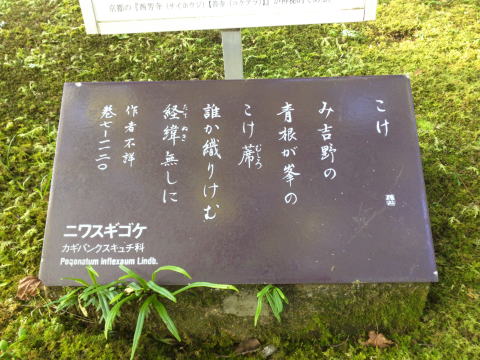 京都の『西芳寺（サイホウジ）【苔寺（コケデラ）】』が
こけ
み吉野の
青根が峯の
こけ蓆
むしろ
誰か織りけむ
経緯無しに
たて ぬき
作者不詳
巻七―一一二〇
ニワスギゴケ
カギバンクスキュチ科
Pogonatum inflexaum Lindb.